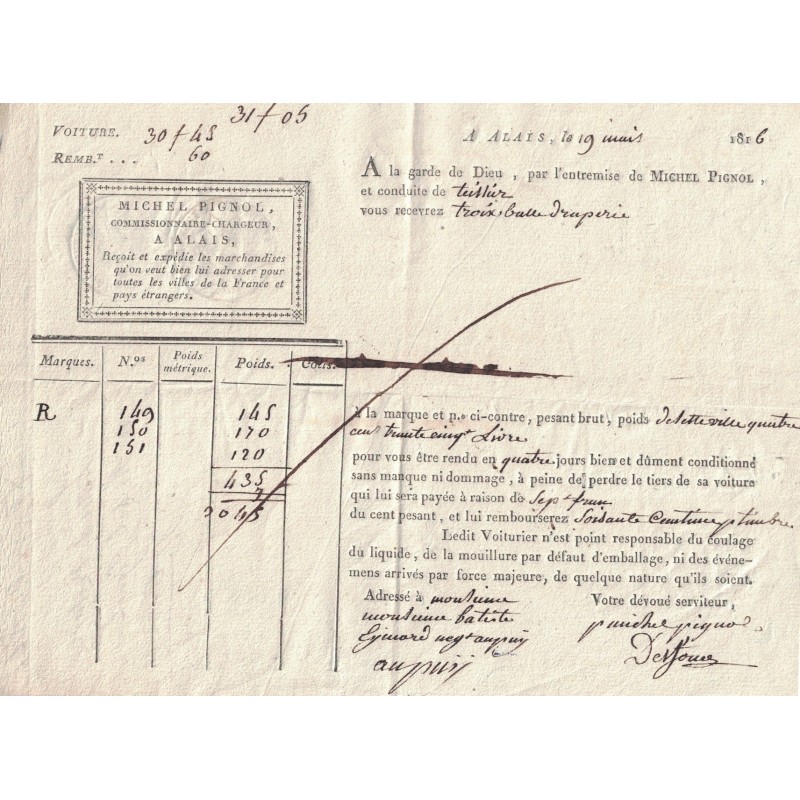 31 f 05
VOITURE. 30 f 45
REMB.T ... 60
A ALAIS, le 19 mars 1816
A la garde de Dieu, par l'entremise de MICHEL PIGNOL,
et conduite de
vous recevrez troix balle draperie
MICHEL PIGNOL,
COMMISSIONNAIRE-CHARGEUR,
A ALAIS,
Reçoit et expédie les marchandises
qu'on veut bien lui adresser pour
toutes les villes de la France et
pays étrangers.
Marques. N.os Poids métrique. Poids. Colis.
R 149 145
150 170
151 120
435
7
3045
A la marque et n.o ci-contre, pesant brut, poids de sette ville quatre
cent trante cinq Livre
pour vous être rendu en quatre jours bien et dûment conditionné
sans manque ni dommage, à peine de perdre le tiers de sa voiture
qui lui sera payée à raison de sept franc
du cent pesant, et lui rembourserez Soisante Centime p timbre.
Ledit Voiturier n'est point responsable du coulage
du liquide, de la mouillure par défaut d'emballage, ni des événe-
mens arrivés par force majeure, de quelque nature qu'ils soient.
Adressé à monsieur
monsieur batiste
Eymard negt aupuy
au puy
Votre dévoué serviteur,
p michel pignol